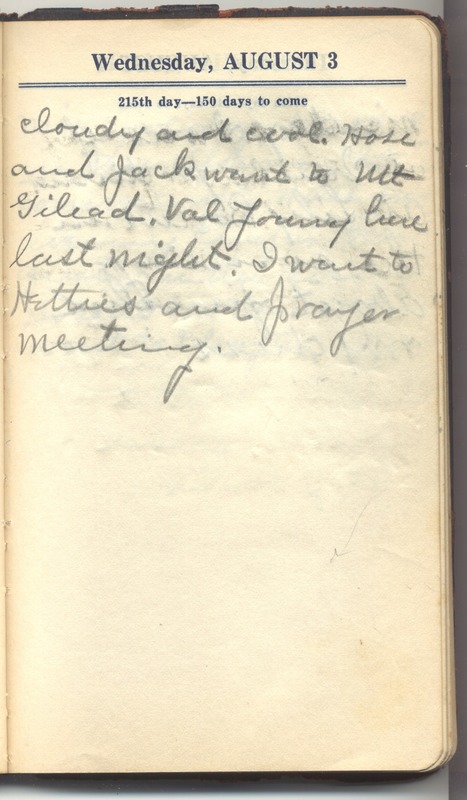 Wednesday, AUGUST 3
215th day—150 days to come
cloudy and cool. Hose
and Jack went to Mt
Gilead. Val Young here
last night. I went to
Hetties and Prayer
meeting.